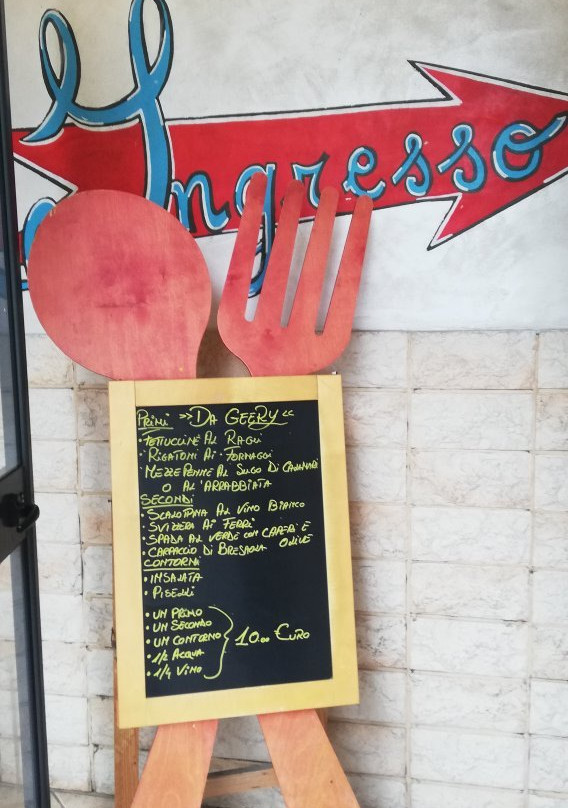 Ingresso
Primi »Da Geery«
• Fettuccine al Ragù
• Rigatoni ai Formaggi
• Mezze Penne al Sugo di
o al'Arrabbiata
Secondi
• Scaloppina al Vino Bianco
• Svizzera ai Ferri
• Spada al verde con capperi e
olive
• Carpaccio di Bresaola
Contorni
• Insalata
• Piselli
• un primo
• un secondo
• un contorno
• 1/2 Acqua
• 1/4 Vino
10.00 €uro